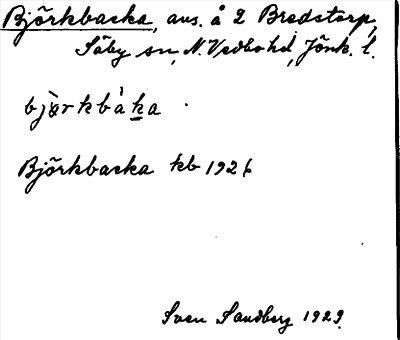 Björkbacka, avs. å 2 Bredstorp,
Säby sn, N. Vedbo hd, Jönk. l.
bjö̀rkbàka
Björkbacka kb 1926
Sven Sandberg 1929.